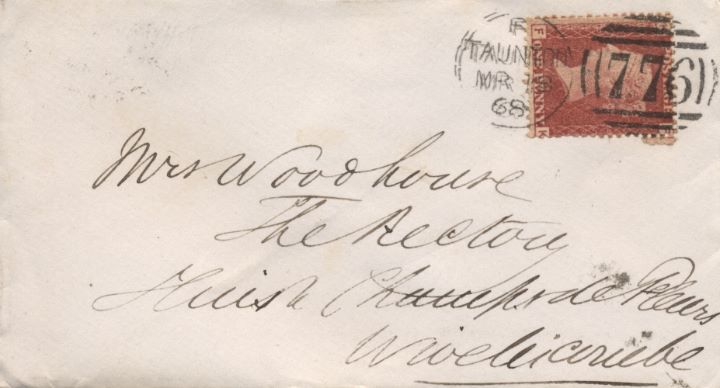 F
TAUNTON
MR 6
68
776
F
ONE PENNY
K
Mrs Woodhouse
The Rectory
Huish Champs de Fleurs
Wiveliscombe